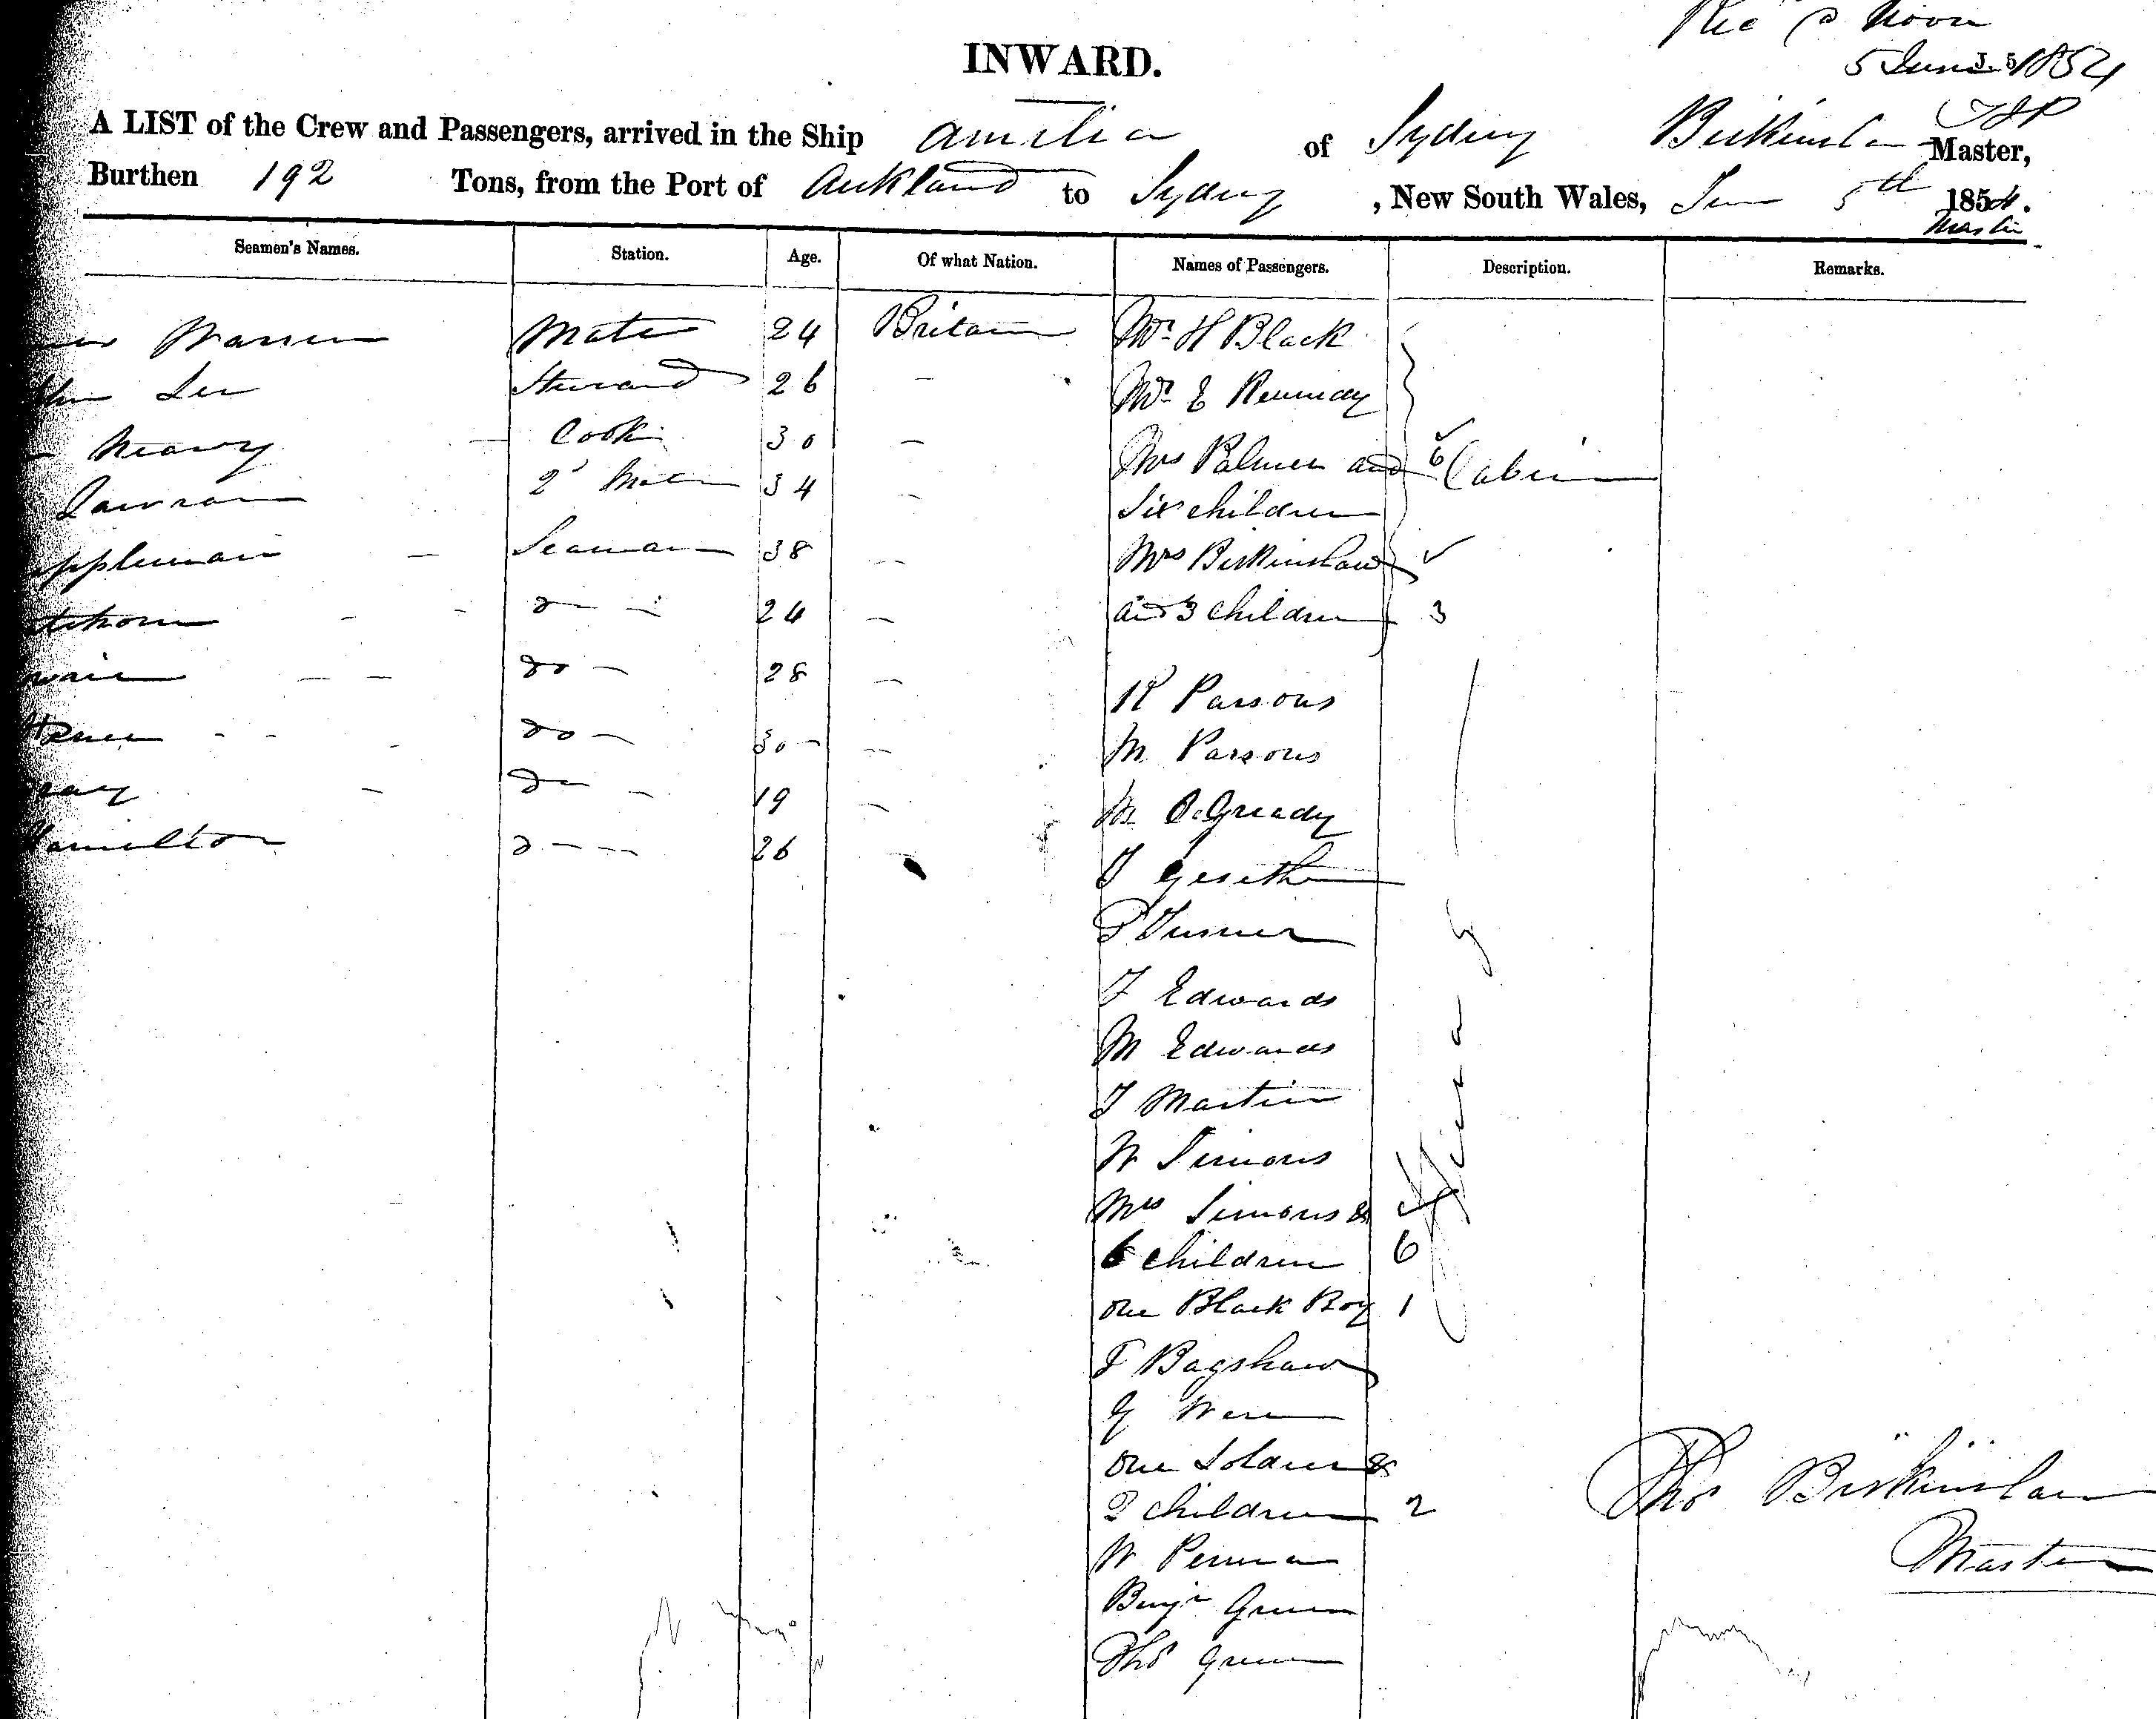 Noon
INWARD.
5 June 1854
A LIST of the Crew and Passengers, arrived in the Ship Amelia of Sydney Birkinshaw Master,
Burthen 192 Tons, from the Port of Auckland to Sydney, New South Wales, June 5th 1854.
Seamen's Names. Station. Age. Of what Nation. Names of Passengers. Description. Remarks.
Warren Mate 24 Britain Mr H Black
Lee Steward 26 - Mr E Kennedy
Neavy Cook 30 - Mrs Palmer and 6 Cabin
2d Mate 34 - Six children
Seaman 38 - Mrs Birkinshaw
do 24 - and 3 children 3
do 28 -
R Parsons
do 30 - M Parsons
do 19 - M O.Gready
Hamilton do 26
P Turner
F Edwards
M Edwards
J Martin
W Simons
Mrs Simons &
6 children 6
one Black Boy 1
F Bagshaw
G
one Soldier &
2 children 2
W
Benjn Green
Thos Green
Steerage
Thos Birkinshaw
Master